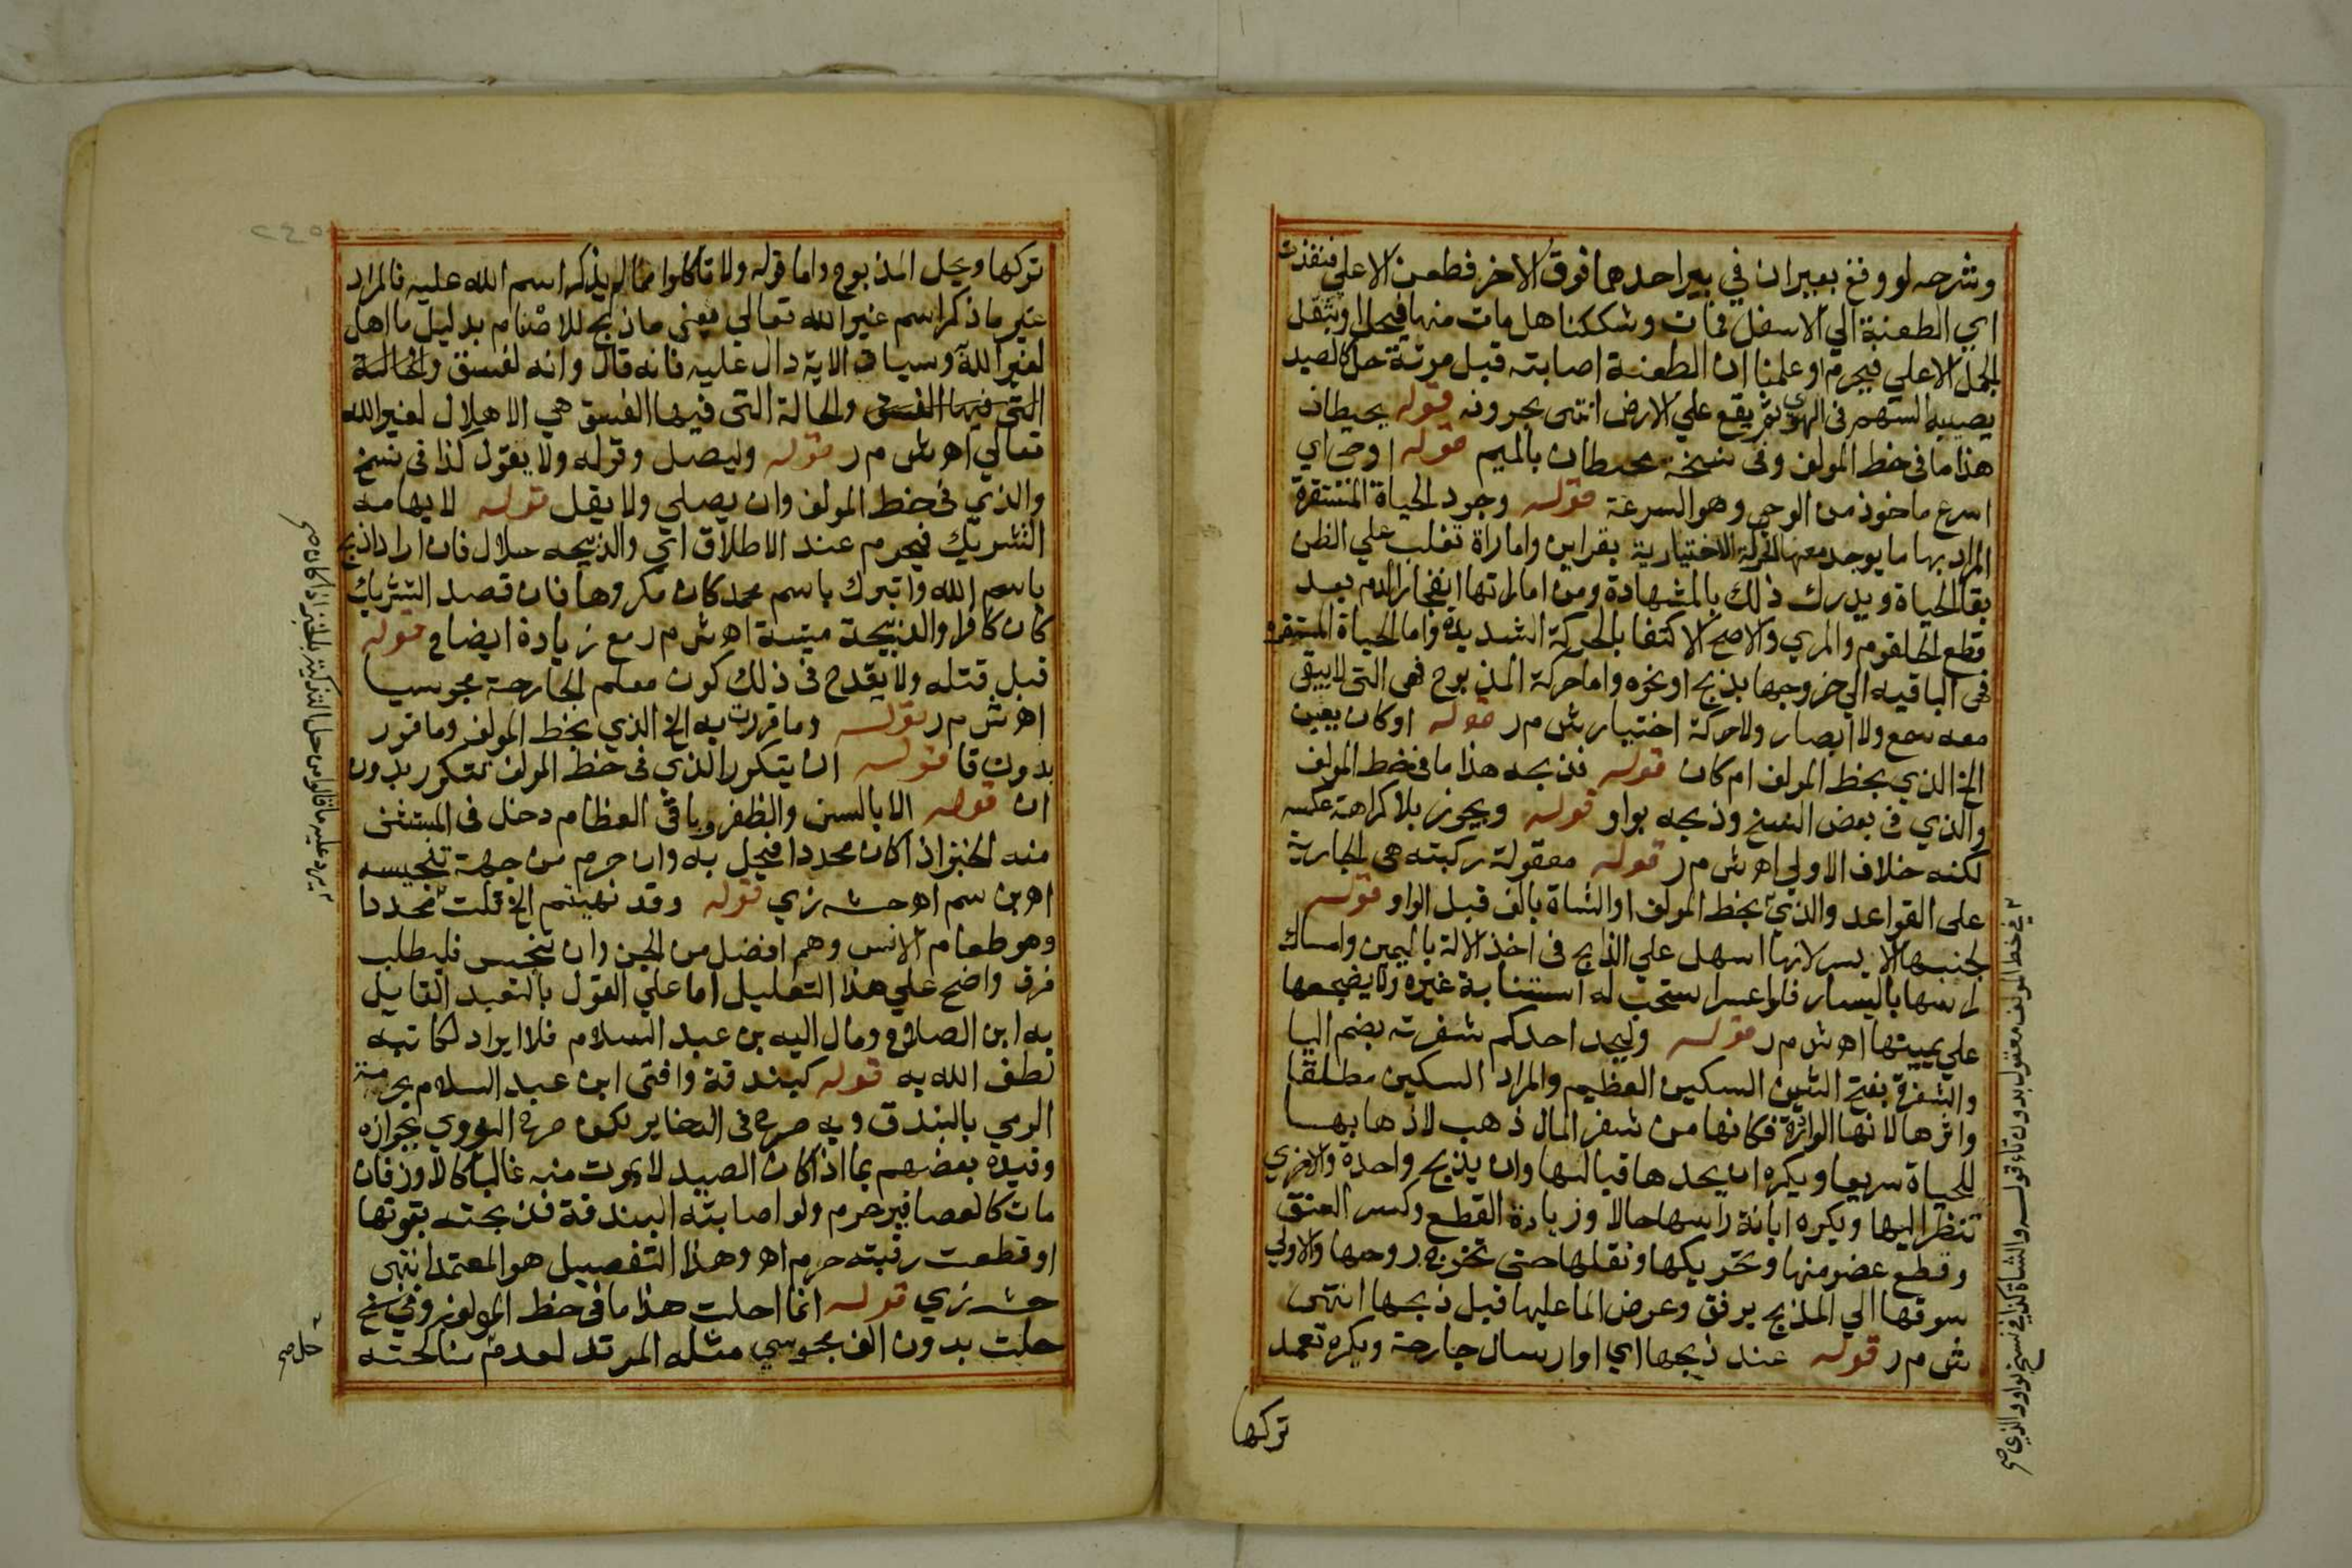 وشرحه لو وقع بعيران في بير احدهما فوق الاخر فطعن الاعلي فنفذت
اي الطعنة الي الاسفل فمات وشككنا هل مات منها فيحل او بثقل
الجمل الاعلي فيحرم او علمنا ان الطعنة اصابته قبل موته حل كالصيد
يصيبه السهم في الهوي ثم يقع علي الارض انتهى بحروفه قوله بحيطان
هذا ما في خط المولف وفي نسخة محيطان بالميم قوله اوحى اي
اسرع ماخوذ من الوحي وهو السرعة قوله وجود الحياة المستقرة
المراد بها ما يوجد معها الحركة الاختيارية بقراين واماراة تغلب علي الظن
بقا الحياة ويدرك ذلك بالمشهادة ومن اماراتها انفجار الدم بعد
قطع الحلقوم والمري والاصح الاكتفا بالحركة الشديدة واما الحياة المستقره
فهى الباقيه الي خروجها بذبح او نحوه واما حركة المذبوح فهى التى لا يبقى
معه سمع ولا ابصار ولا حركة اختيار ش م ر قوله او كان يعين
الخ الذي بخط المولف ام كان قوله فذبحه هذا ما في خط المولف
والذي في بعض النسخ وذبحه بواو قوله ويجوز بلا كراهة عكسه
لكنه خلاف الاولي اه ش م ر قوله معقولة ركبته هى الجارية
على القواعد والذي بخط المولف او الشاة بالف قبل الواو قوله
لجنبها الايسر لانها اسهل علي الذابح في اخذ الالة باليمين وامساك
راسها باليسار فلو اعسر استحب له استنابة غيره ولا يضجعها
علي يمينها اه ش م ر قوله وليحد احدكم شفرته بضم اليا
والشفرة بفتح الشين السكين العظيم والمراد السكين مطلقا
واثرها لانها فكانها من شفر المال ذهب لاذهابها
للحياة سريعا ويكره ان يحدها قبالتها وان يذبح واحدة والاخري
تنظر اليها ويكره ابانة راسها حالا وزيادة القطع وكسر العنق
وقطع عضو منها وتحريكها ونقلها حتى تخرج روحها والاولي
سوقها الي المذبح برفق وعرض الما عليها قبل ذبحها انتهى
ش م ر قوله عند ذبحها اي او ارسال جارحة ويكره تعمد
تركها
في خط المولف معقول بدون تاء قوله والشاة كذا في نسخ بواو والذي صح
تركها ويحل المذبوح واما قوله ولا تاكلوا مما لم يذكر اسم الله عليه فالمراد
غير ما ذكر اسم غير الله تعالي يعنى ما ذبح للاصنام بدليل ما اهل
لغير الله وسياق الاية دال عليه فانه قال وانه لفسق والحالة
التى فيها الفسق والحالة التى فيها الفسق هي الاهلال لغير الله
تعالي اه ش م ر قوله وليصل وقوله ولا يقول كذا في نسخ
والذي في خط المولف وان يصلي ولا يقل قوله لايهامه
التشريك فيحرم عند الاطلاق اي والذبيحه حلال فان اراد اذبح
باسم الله واتبرك باسم محمد كان مكروها فان قصد التشريك
كان كافرا والذبيحة ميتة اه ش م ر مع زيادة ايضاح قوله
قبل قتله ولا يقدح في ذلك كون معلم الجارحة مجوسيا
اه ش م ر قوله وما قررت به الخ الذي بخط المولف وما قرر
بدون تا قوله ان يتكرر الذي في خط المولف تتكرر بدون
ان قوله الا بالسن والظفر وباقي العظام دخل في المستثنى
منه الخبز اذا كان محددا فيحل به وان حرم من جهة تنجيسه
اه بن سم اه حشـ زي قوله وقد نهيتم الخ قلت فحددا
وهو طعام الانس وهم افضل من الجن وان تنجس فليطلب
فرق واضح علي هذا التعليل اما علي القول بالتعبد القايل
به ابن الصلاح ومال اليه بن عبد السلام فلا ايراد لكاتبه
لطف الله به قوله كبندقة وافتى ابن عبد السلام بحرمة
الرمي بالبندق وبه صرح في الدخاير لكن صرح النووي بجوازه
وقيده بعضهم بما اذا كان الصيد لا يموت منه غالبا كالاوز فان
مات كالعصافير حرم ولو اصابته البندقة فذبحته بقوتها
او قطعت رقبته حرم اه وهذا التفصيل هو المعتمد انتهى
حشـ زي قوله انما احلت هذا ما في خط المولف وفي نسخ
حلت بدون الف مجوسي مثله المرتد لعدم مناكحته
يرد عليه ما قالوا من حل التذكية بالخبز اذا كان صح
حل صح